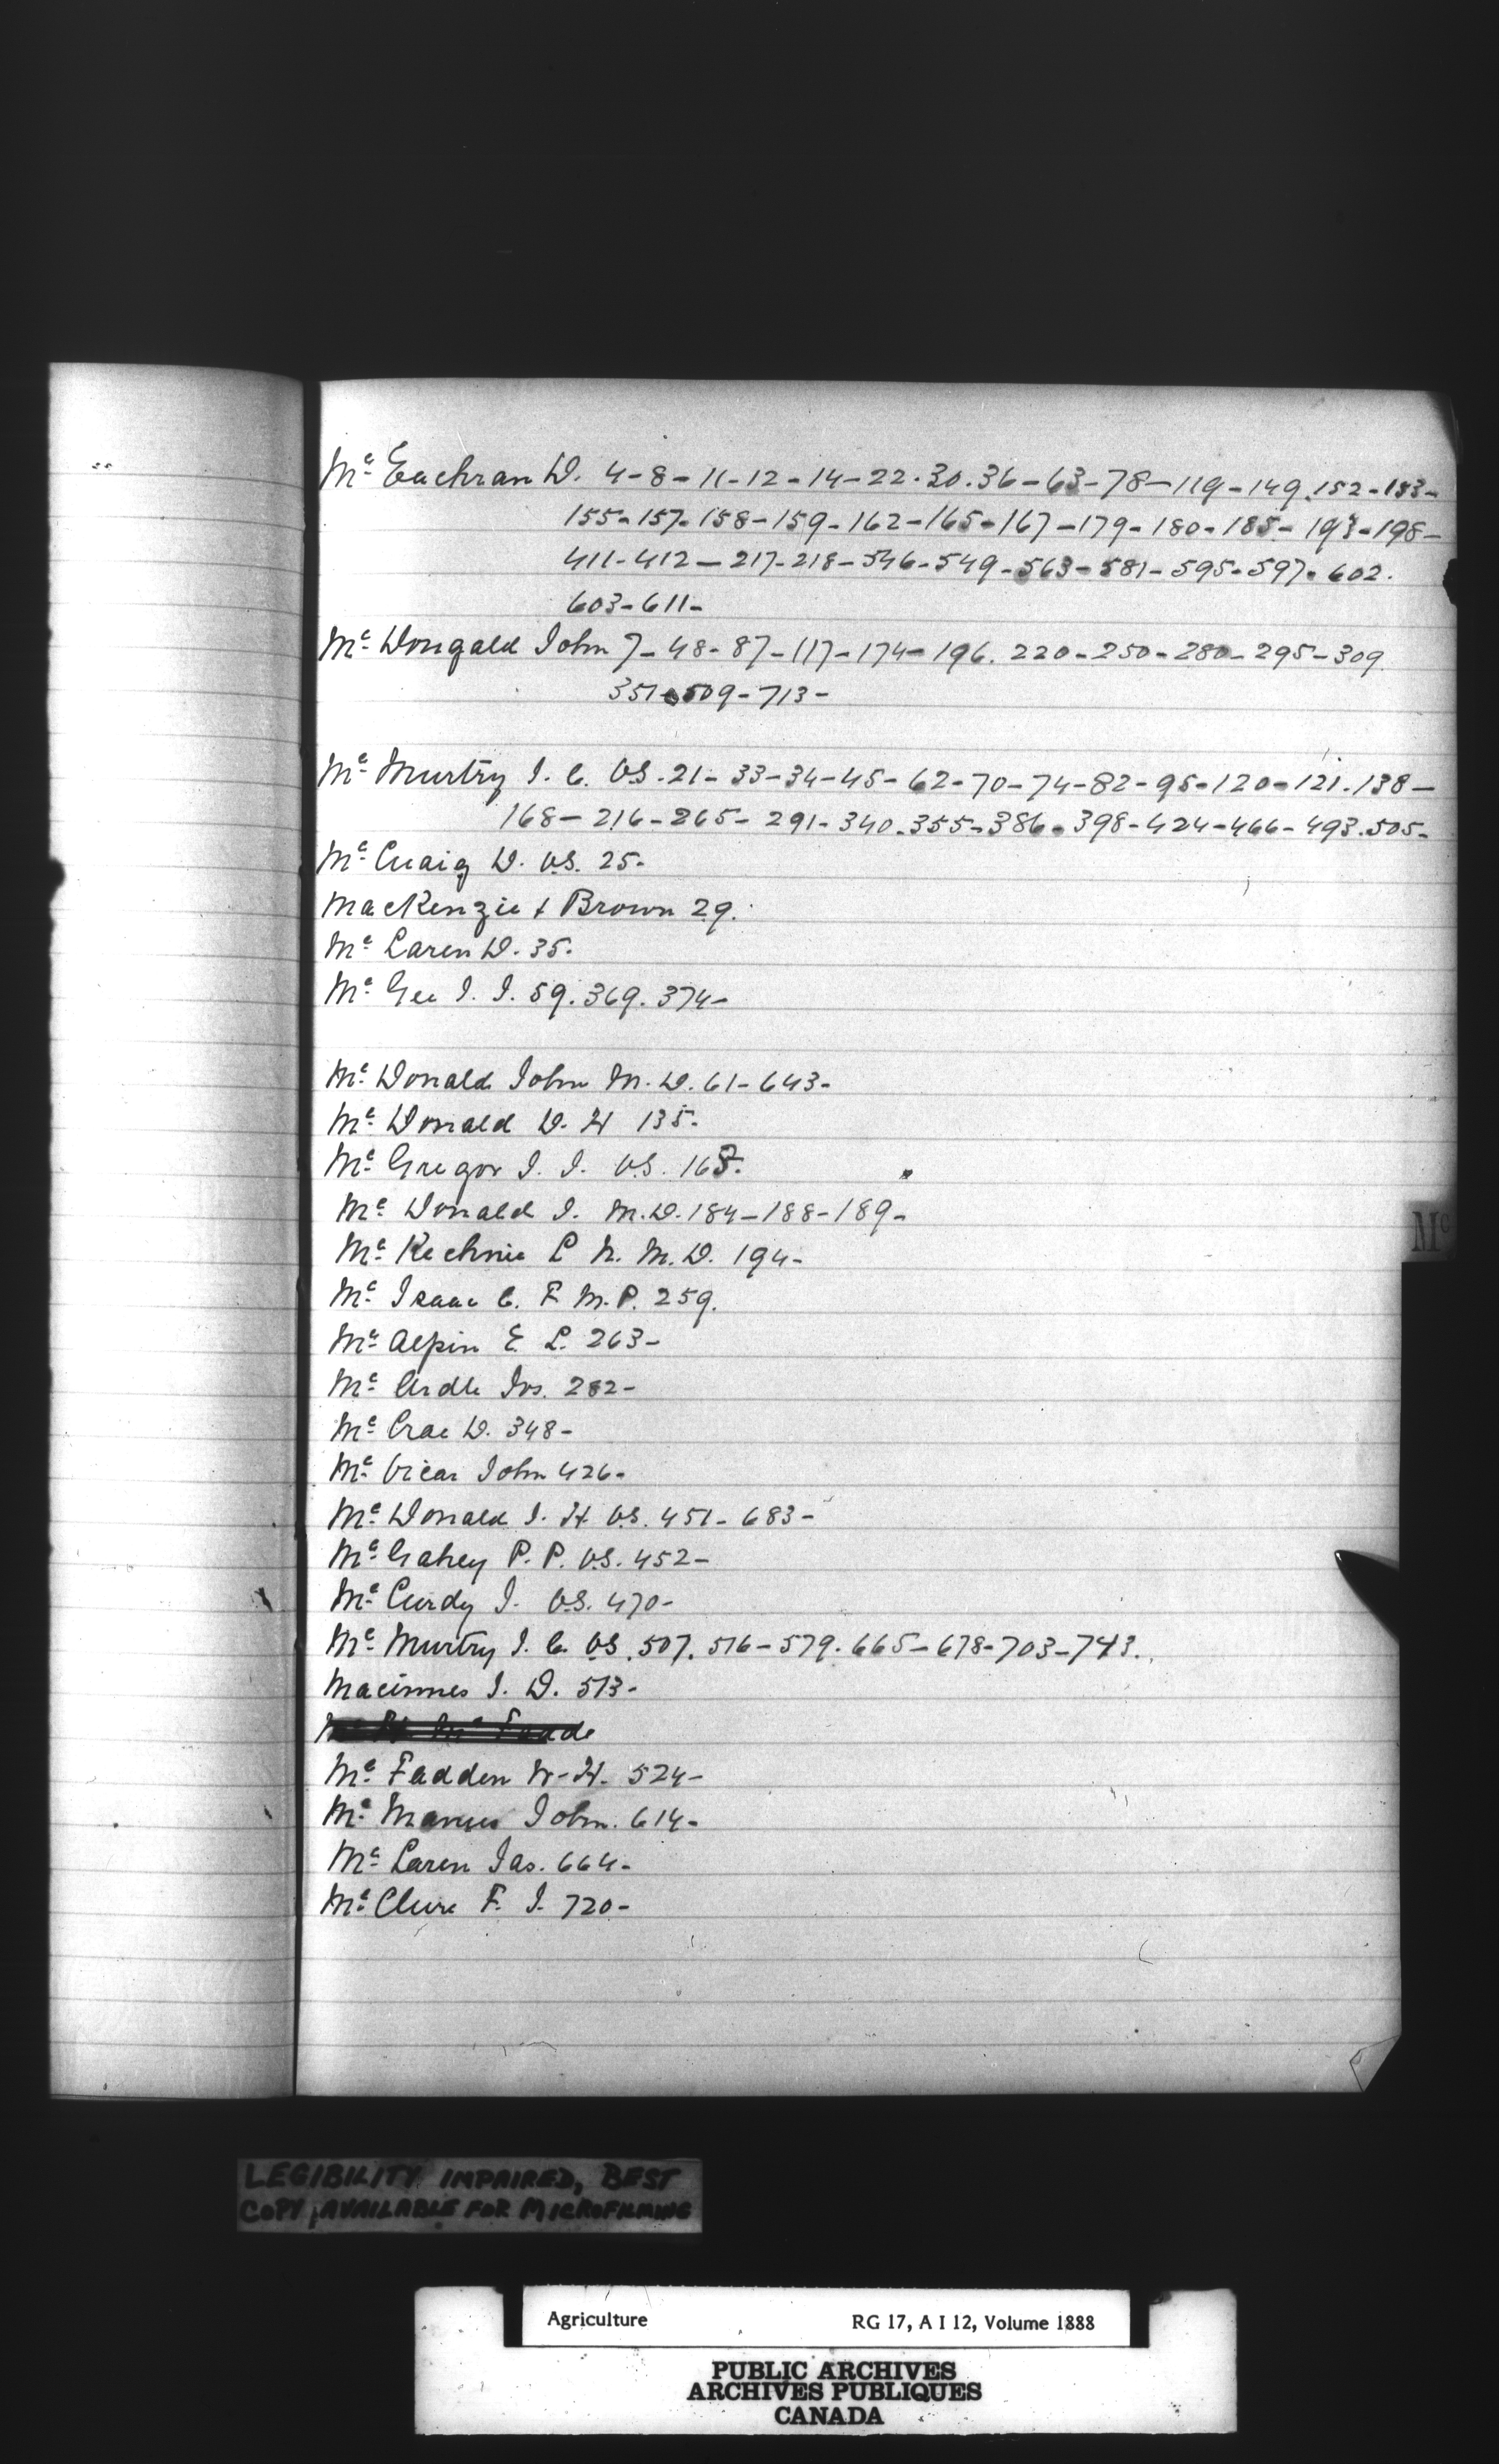 Mc Eachran D. 4-8-11-12-14-22.30.36-63-78-119-149.152-153-
155-157-158-159-162-165-167-179-180-185-193-198-
411-412-217-218-546-549-563-581-595-597-602.
603-611-
Mc Dougald John 7-48-87-117-174-196.220-250-280-295-309
351-509-713-
Mc Murtry J. C. VS.21-33-34-45-62-70-74-82-95-120-121.138-
168-216-265-291-340.355-386-398-424-466-493.505-
Mc Cuaig D. VS. 25-
MacKenzie & Brown 29.
Mc Laren D. 35-
Mc Gee J. J. 59.369.374-
Mc Donald John M.D. 61-643-
Mc Donald D. H 135-
Mc Gregor J. J. VS.
Mc Donald J. M.D. 184-188-189-
Mc Kechnie L N. M.D. 194-
Mc Isaac C. F M.P. 259.
Mc Alpin E. L. 263-
Mc Ardle Jos. 282-
Mc Crae D. 348-
Mc Vicar John 426-
Mc Donald J. H. VS. 451-683-
Mc Gahey P. P. VS. 452-
Mc Curdy J. VS. 470-
Mc Murtry J. C. VS. 507.516-579.665-678-703-743.
Macinnes J. D. 513-
Mc Fadden W-H. 524-
Mc Manus John. 614-
Mc Laren Jas. 664-
Mc Clure F. J. 720-
Mc
LEGIBILITY IMPAIRED, BEST
COPY AVAILABLE FOR MICROFILMING
Agriculture RG 17, A I 12, Volume 1888
PUBLIC ARCHIVES
ARCHIVES PUBLIQUES
CANADA